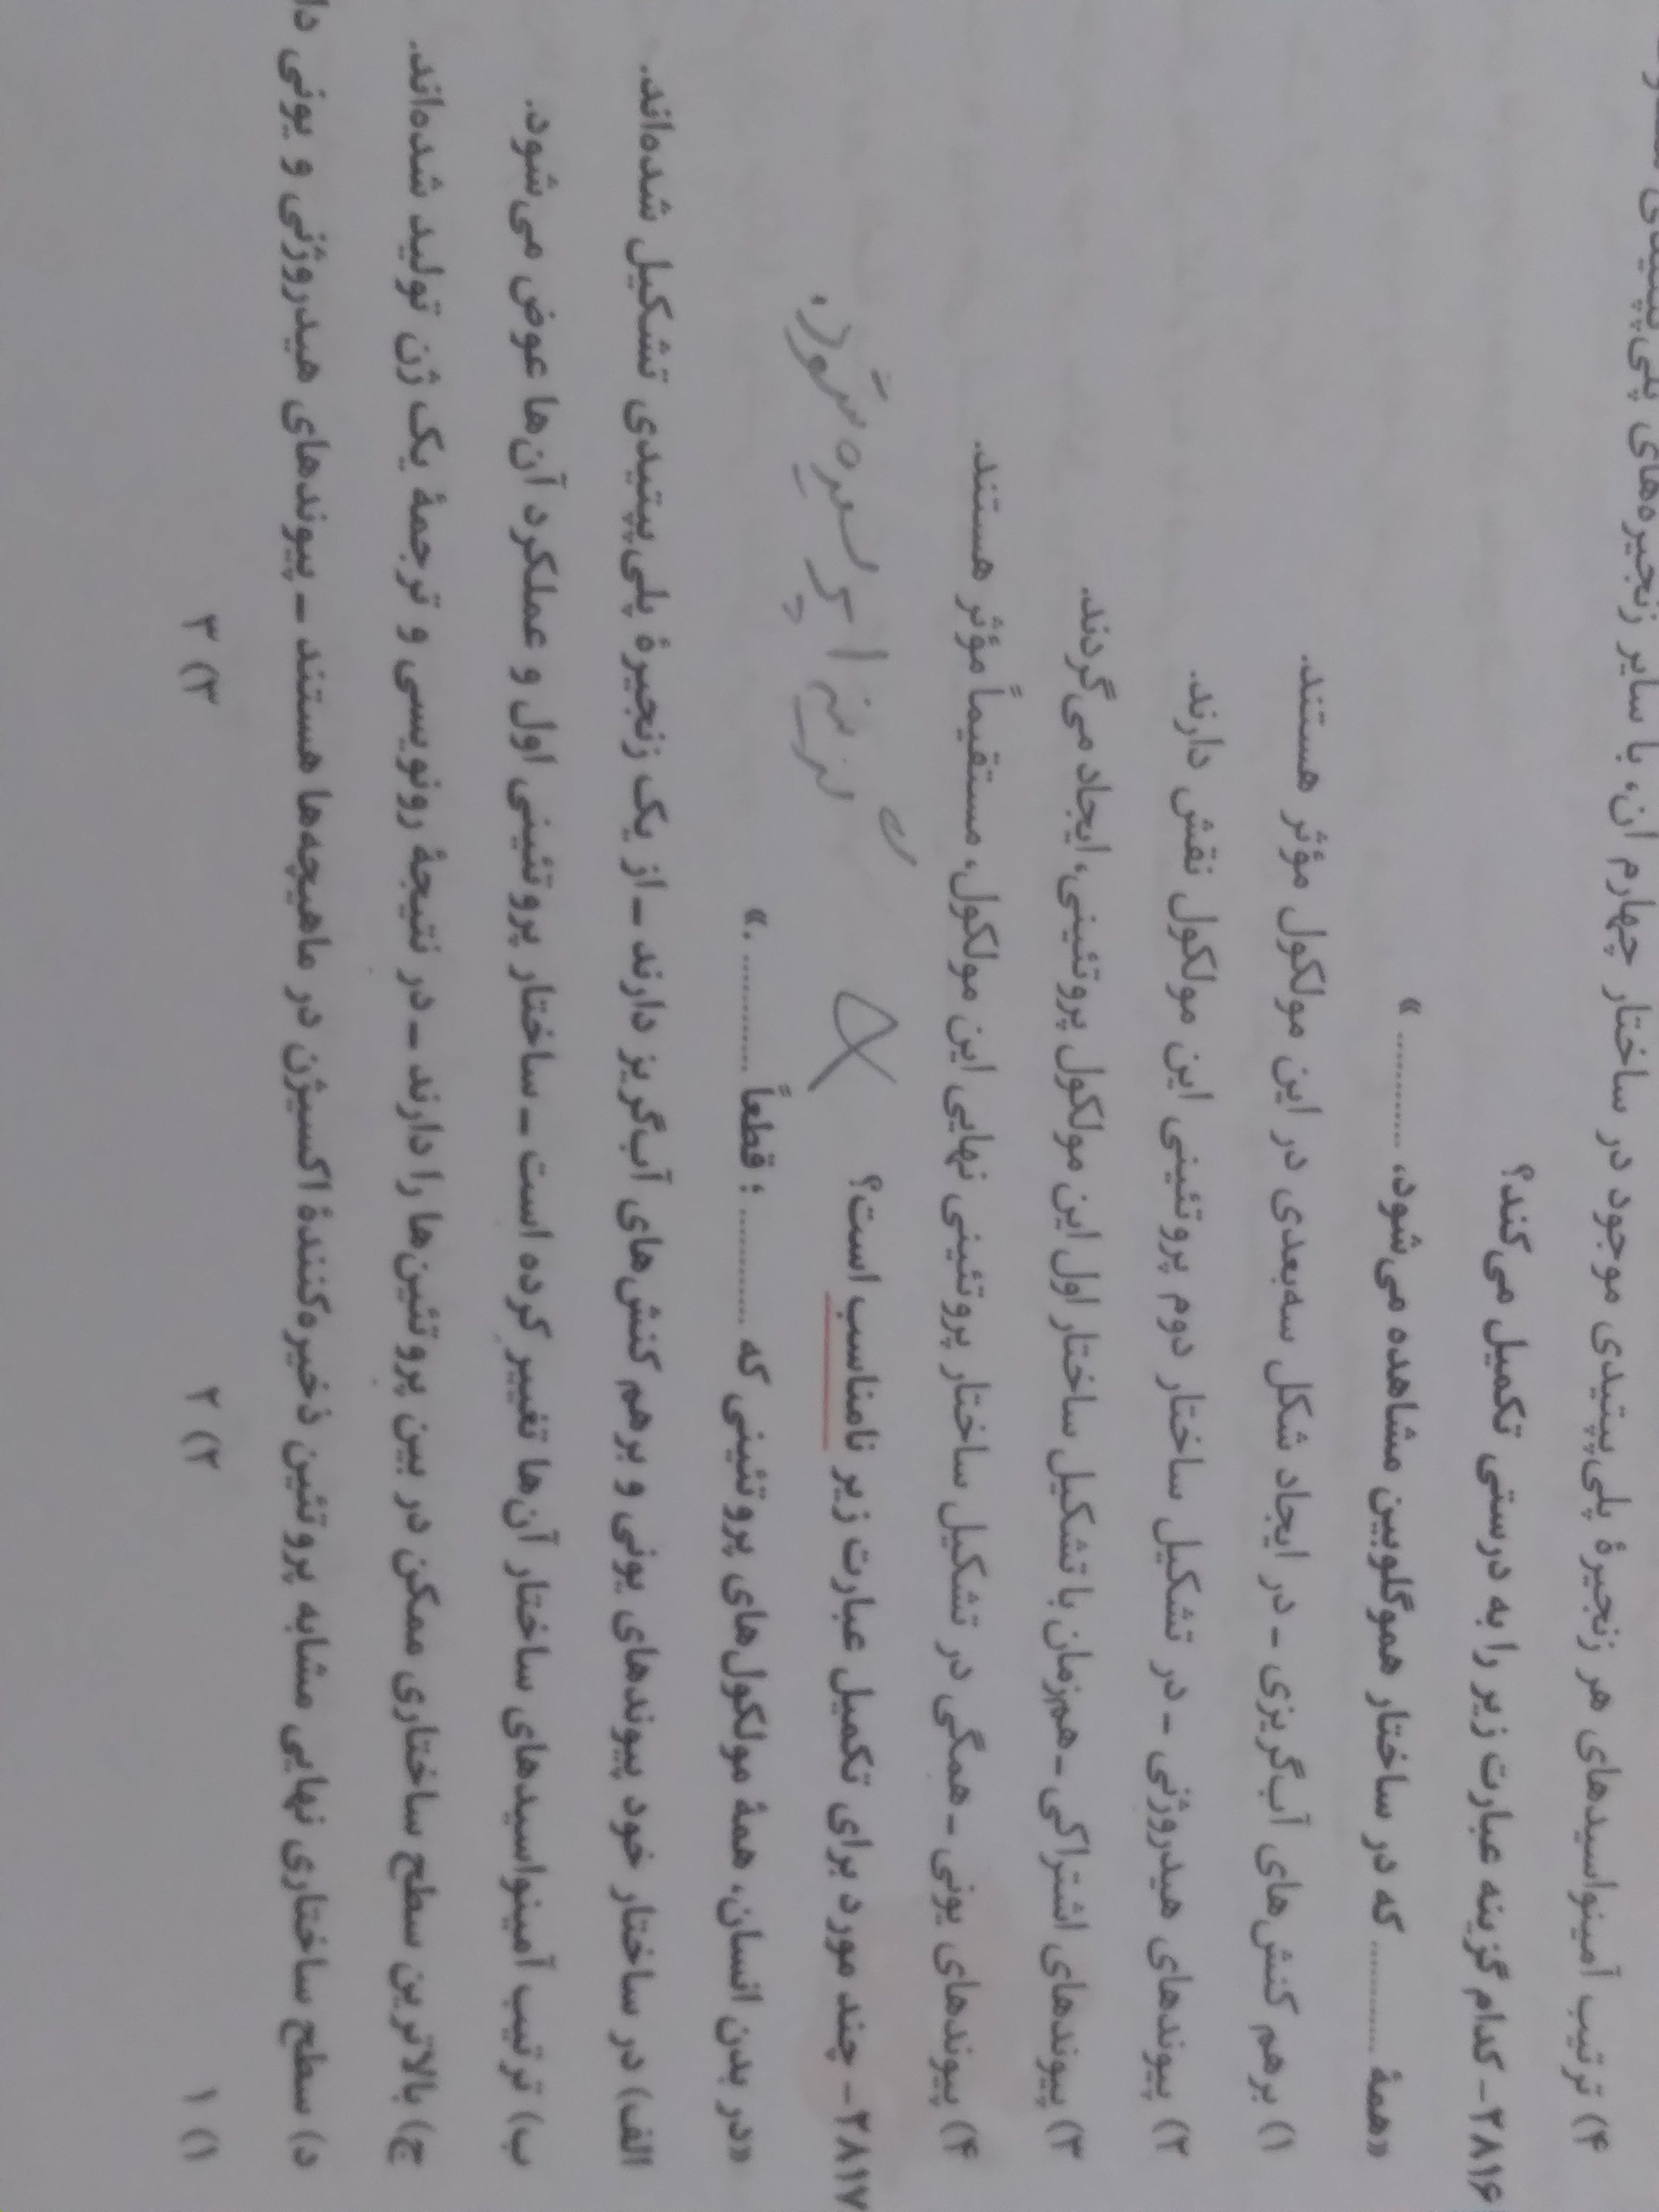 ۴) ترتیب آمینواسیدهای هر زنجیرهٔ پلی‌پپتیدی موجود در ساختار چهارم آن، با سایر زنجیره‌های پلی‌پپتیدی
۲۸۱۶- کدام گزینه عبارت زیر را به درستی تکمیل می‌کند؟
«همهٔ ............ که در ساختار هموگلوبین مشاهده می‌شود، ............ »
۱) برهم کنش‌های آب‌گریزی - در ایجاد شکل سه‌بعدی در این مولکول مؤثر هستند.
۲) پیوندهای هیدروژنی - در تشکیل ساختار دوم پروتئینی این مولکول نقش دارند.
۳) پیوندهای اشتراکی - هم‌زمان با تشکیل ساختار اول این مولکول پروتئینی، ایجاد می‌گردند.
۴) پیوندهای یونی - همگی در تشکیل ساختار پروتئینی نهایی این مولکول، مستقیماً مؤثر هستند.
۲۸۱۷- چند مورد برای تکمیل عبارت زیر نامناسب است؟
«در بدن انسان، همهٔ مولکول‌های پروتئینی که ............ ؛ قطعاً ............ .»
الف) در ساختار خود پیوندهای یونی و برهم کنش‌های آب‌گریز دارند - از یک زنجیرهٔ پلی‌پپتیدی تشکیل شده‌اند.
ب) ترتیب آمینواسیدهای ساختار آن‌ها تغییر کرده است - ساختار پروتئینی اول و عملکرد آن‌ها عوض می‌شود.
ج) بالاترین سطح ساختاری ممکن در بین پروتئین‌ها را دارند - در نتیجهٔ رونویسی و ترجمهٔ یک ژن تولید شده‌اند.
د) سطح ساختاری نهایی مشابه پروتئین ذخیره‌کنندهٔ اکسیژن در ماهیچه‌ها هستند - پیوندهای هیدروژنی و یونی
۱) ۱ ۲) ۲ ۳) ۳